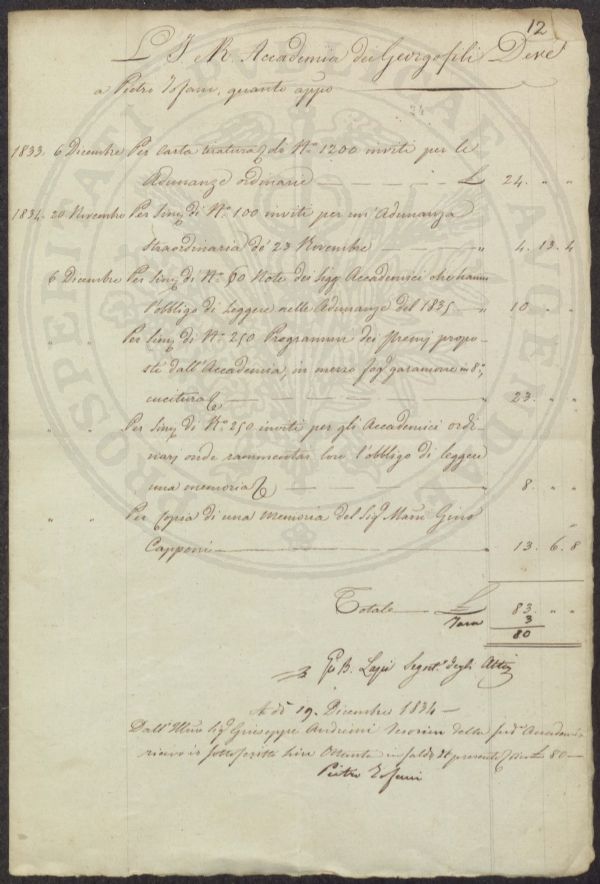 12
L' I e R. Accademia dei Georgofili Deve
a Pietro quanto appo
24
1833. 6 Dicembre Per carta tiratura di N.° 1200 inviti per le
Adunanze ordinarie — £ 24. " "
1834. 20 Novembre Per simq di N.° 100 inviti per un'Adunanza
straordinaria de' 23 Novembre — " 4. 13. 4
6 Dicembre Per simq di N.° Note dei Sigq Accademici che hanno
l'obbligo di leggere nelle Adunanze del 1835 — " 10 " "
" " Per simq di N.° 250 Programmi dei premj propo-
sti dall'Accademia, in mezzo fogq garamone in 8°,
cucitura — " 23. " "
" " Per simq di N.° 250 inviti per gli Accademici ordi-
narj onde rammentar loro l'obbligo di leggere
una memoria — " 8. " "
" " Per copia di una memoria del Sigq Gino
Capponi — " 13. 6. 8
Totale — £ 83. " "
Tara 3
80
B. Lapi Segret.° degli Atti
A dì 19. Dicembre 1834 —
Dall' Illmo Sigq Giuseppe Andreini Tesoriere della Accademia
ricevo io sottoscritto Lire Ottanta in saldo del presente £ 80 —
Pietro
PROSPERITATI PUBLICAE AUGENDAE